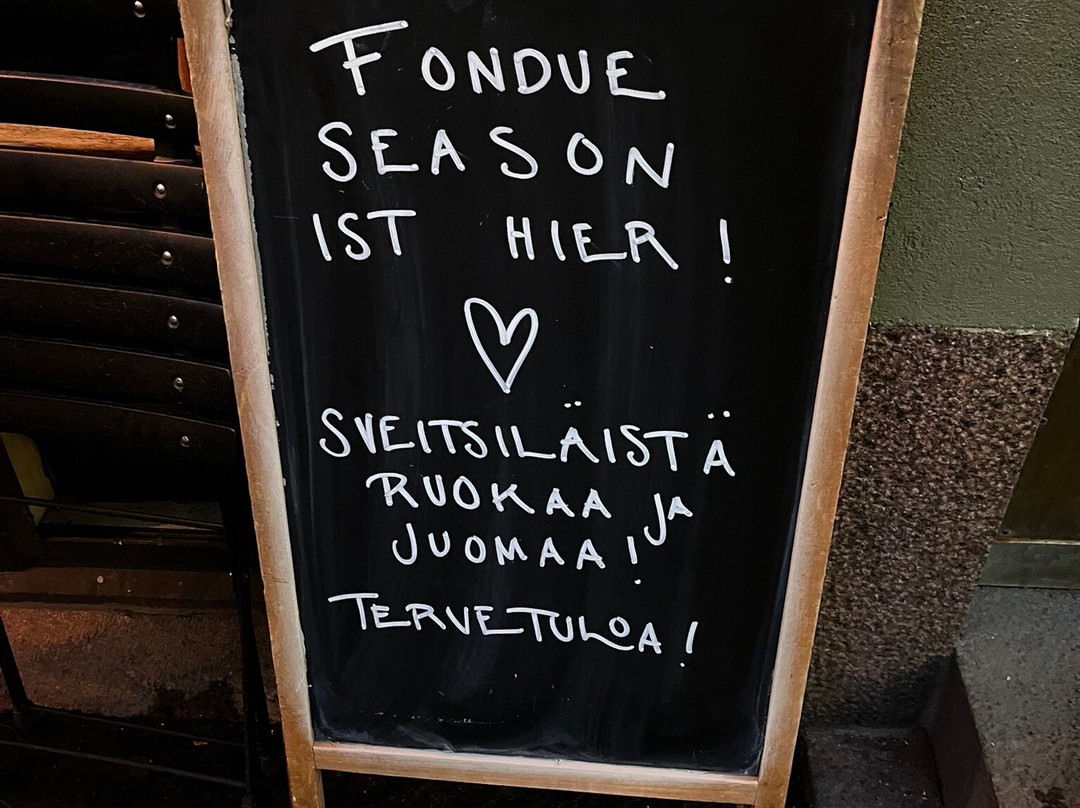 FONDUE
SEASON
IST HIER!
SVEITSILÄISTÄ
RUOKAA JA
JUOMAA!
TERVETULOA!